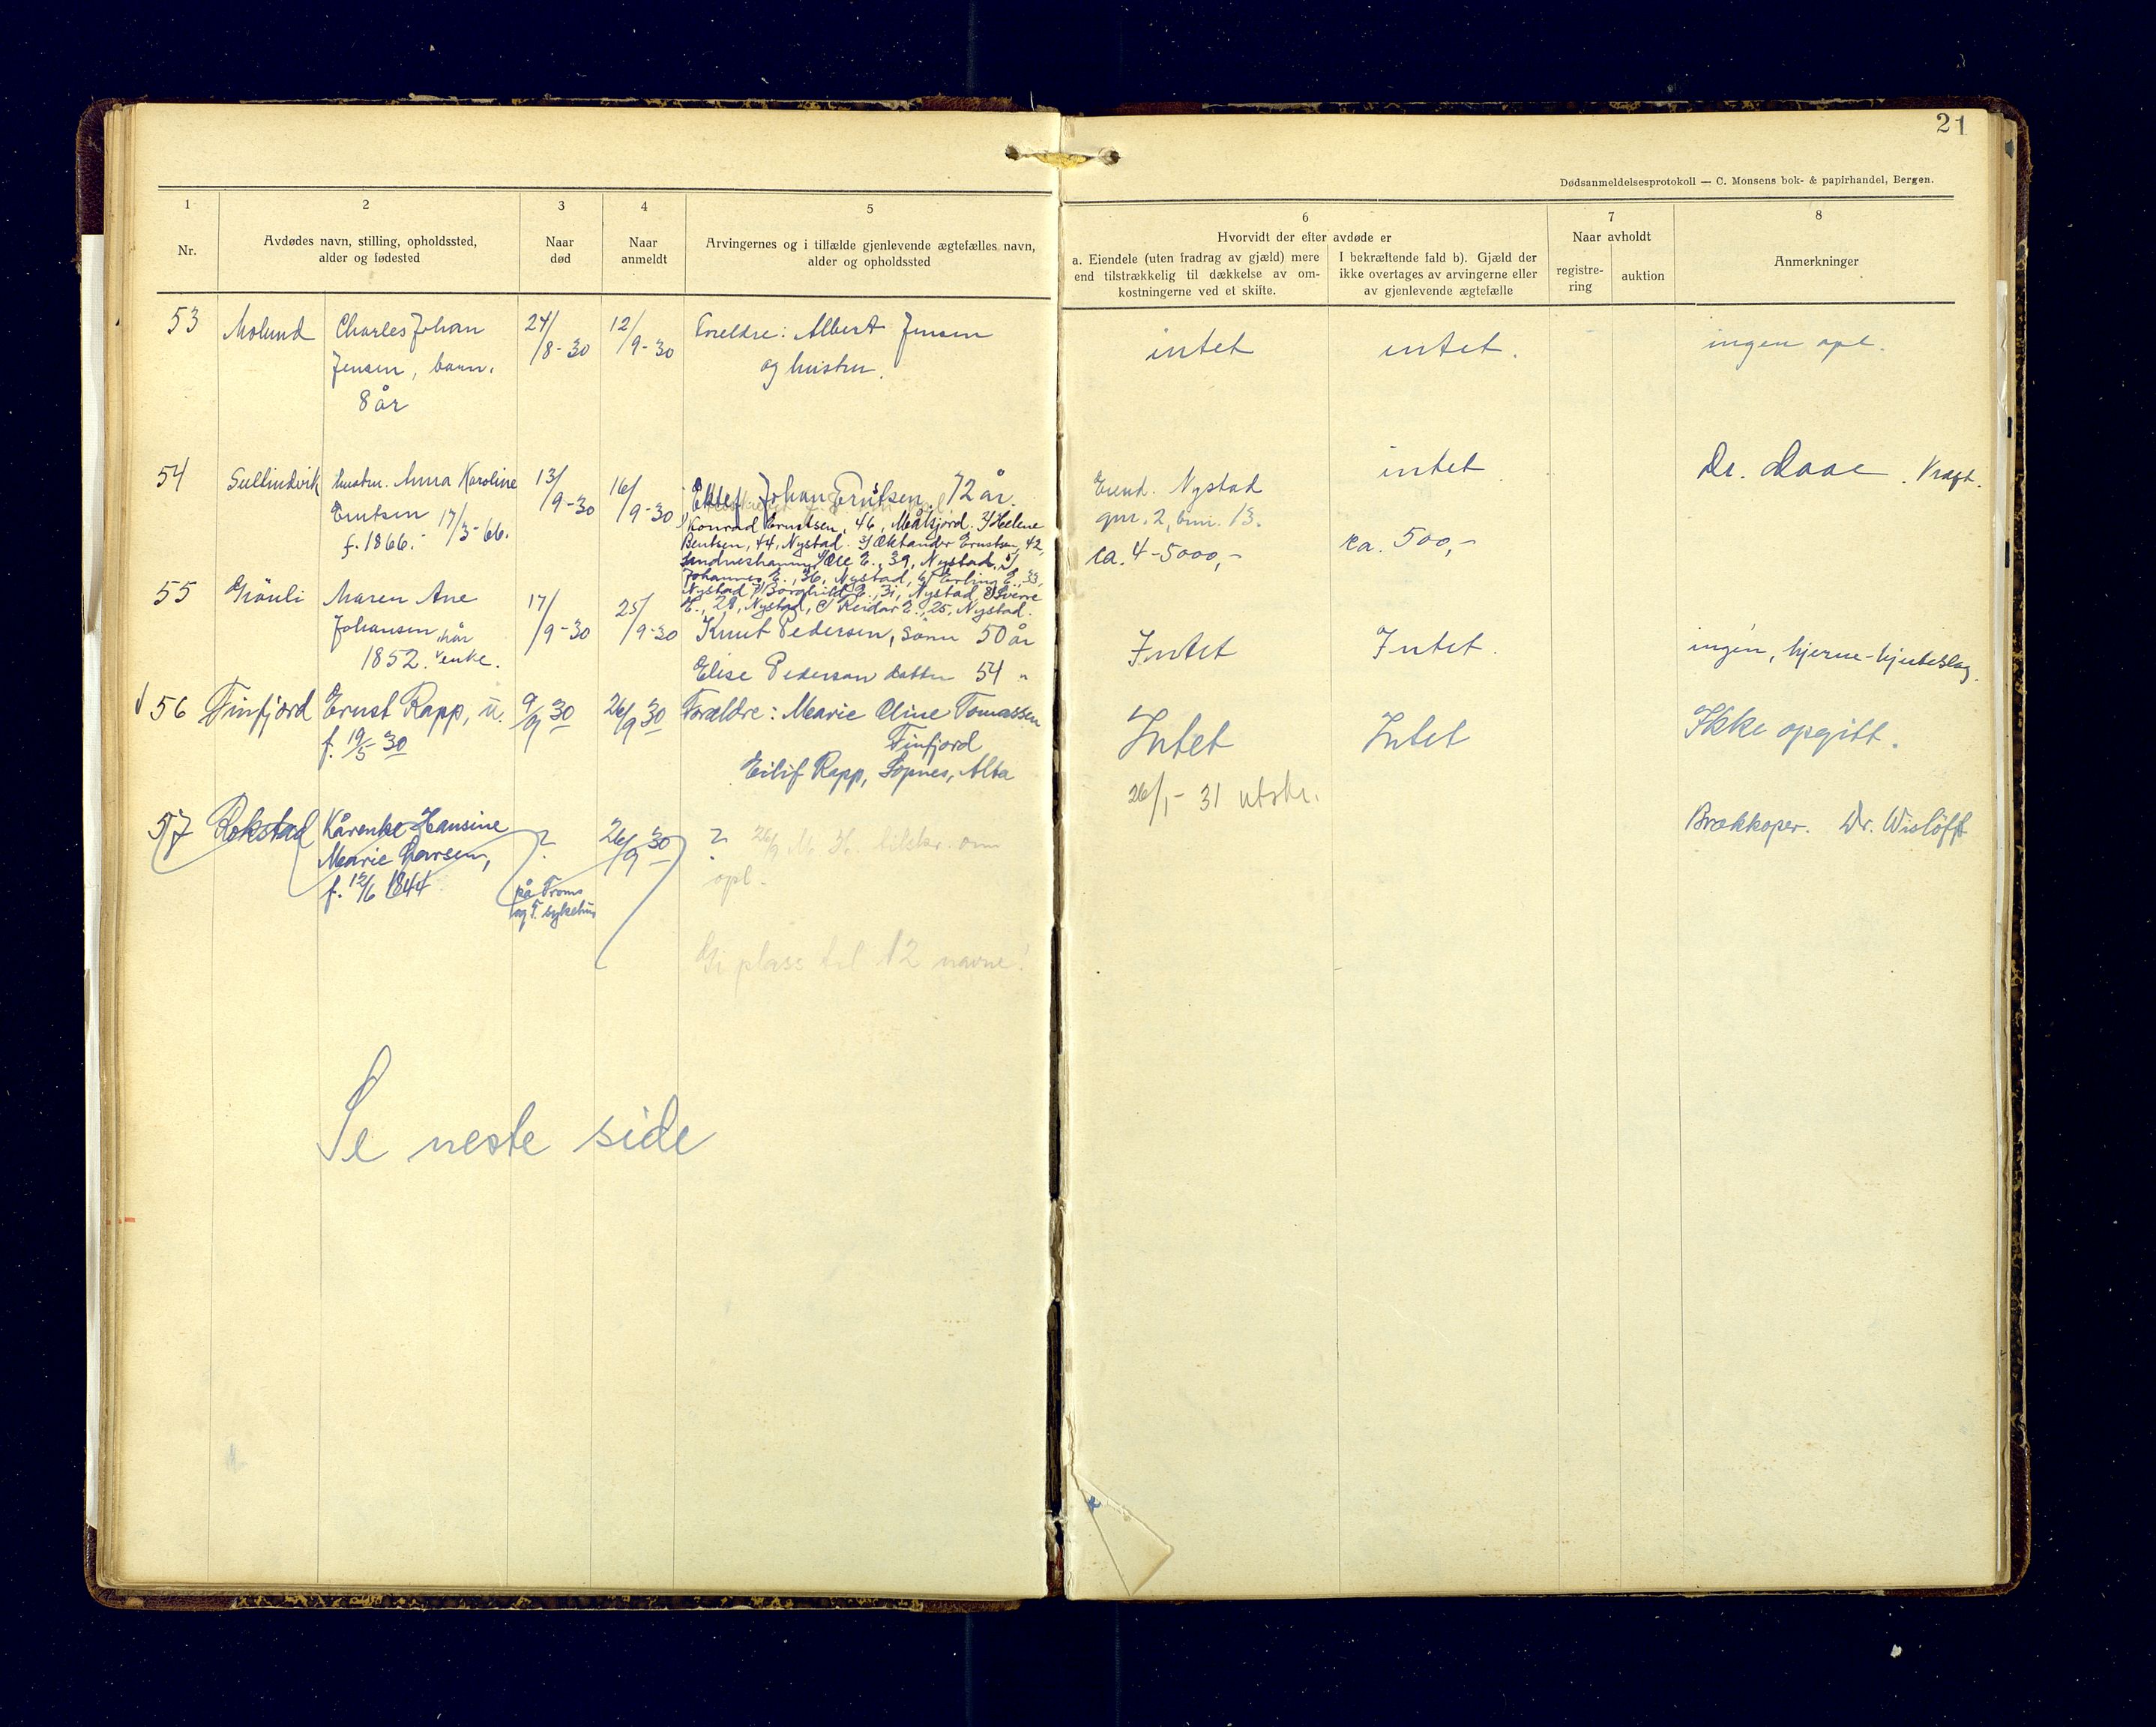 21
Dødsanmeldelsesprotokoll — C. Monsens bok- & papirhandel, Bergen.
1
Nr.
2
Avdødes navn, stilling, opholdssted,
alder og fødested
3
Naar
død
4
Naar
anmeldt
5
Arvingernes og i tilfælde gjenlevende ægtefælles navn,
alder og opholdssted
6
Hvorvidt der efter avdøde er
a. Eiendele (uten fradrag av gjæld) mere
end tilstrækkelig til dækkelse av om-
kostningerne ved et skifte.
I bekræftende fald b). Gjæld der
ikke overtages av arvingerne eller
av gjenlevende ægtefælle
7
Naar avholdt
registre-
ring
auktion
8
Anmerkninger
53 Molund Charles Johan
Jensen, barn.
8 år
24/8-30
12/9-30
Foreldre: Albert Jensen
og hustru.
intet
intet.
ingen opl.
54 Sullindvik hustru. Anna Karoline
Erntsen 17/3-66.
f. 1866.
13/9-30
16/9-30
Ektef Johan Erntsen 72 år.
1) Konrad Erntsen, 46, Målsjord. 2) Helene
Bentsen, 44, Nystad. 3) Oktander Erntsen, 42,
Sandneshamn, 4) Ole E., 39, Nystad, 5)
Johannes E., 36, Nystad, 6) Erling E., 33,
Nystad 7) Borghild E., 31, Nystad, 8) Sverre
E., 29, Nystad, 9) Reidar E., 25, Nystad.
Eiend. Nystad
gnr. 2, bnr. 13.
ca. 4-5000,-
intet
ca. 500,-
Dr. Daae. Kræft.
55 Grönli Maren Ane
Johansen, når
1852. enke.
17/9-30
25/9-30
Knut Pedersen, sönn 50 år
Elise Pedersen datter 54 "
Intet
Intet.
ingen, hjerne-hjerteslag.
56 Finfjord Ernst Rapp, u.
f. 19/5 30
9/9 30
26/9 30
Forældre: Marie Oline Tomassen
Finfjord
Eilif Rapp, Sopnes, Alta
Intet
Intet
Ikke opgitt.
26/1-31 utskr.
57 Rokstad Kårenke Hansine
Marie Larsen,
f. 12/6 1844
?
på Troms
og T. sykehus
26/9 30
? 26/9 tilskr. om
opl.
Brokkoper. Dr. Wislöff
Gi plass til 12 navne!
Se neste side